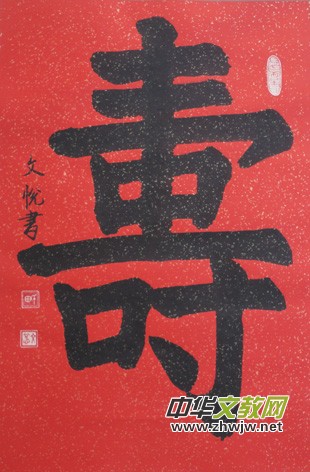 壽
文悦書
中华文教网
www.zhwjw.net